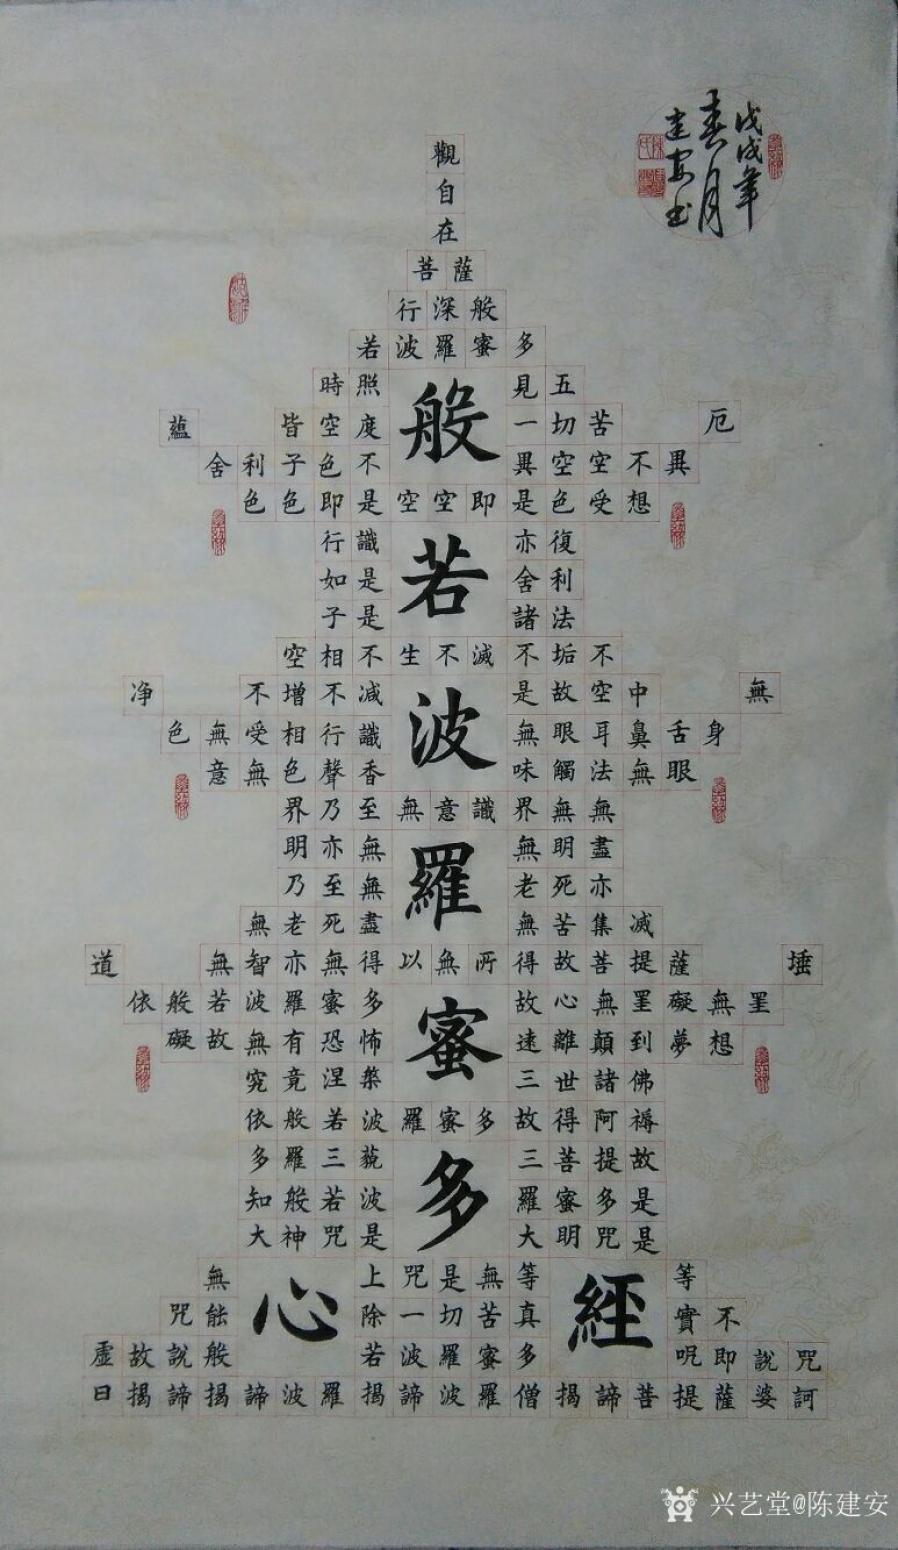 般若波羅蜜多心經
觀
自
在
菩薩
行深般
若波羅蜜多
時照見五
蘊皆空度一切苦厄
舍利子色不異空空不異
色色即是空空即是色受想
行識亦復
如是舍利
子是諸法
空相不生不滅不垢不
净不增不减是故空中無
色無受相行識無眼耳鼻舌身
意無色聲香味觸法無眼
界乃至無意識界無無
明亦無無明盡
乃至無老死亦
無老死盡無苦集滅
道無智亦無得以無所得故菩提薩埵
依般若波羅蜜多故心無罣礙無罣
礙故無有恐怖遠離顛到夢想
究竟涅槃三世諸佛
依般若波羅蜜多故得阿褥
多羅三藐三菩提故
知般若波羅蜜多是
大神咒是大明咒是
無上咒是無等等
咒能除一切苦真實不
虛故說般若波羅蜜多呪即說咒
曰揭諦揭諦波羅揭諦波羅僧揭諦菩提薩婆訶
戊戌年
春月
建安书
兴艺堂@陈建安